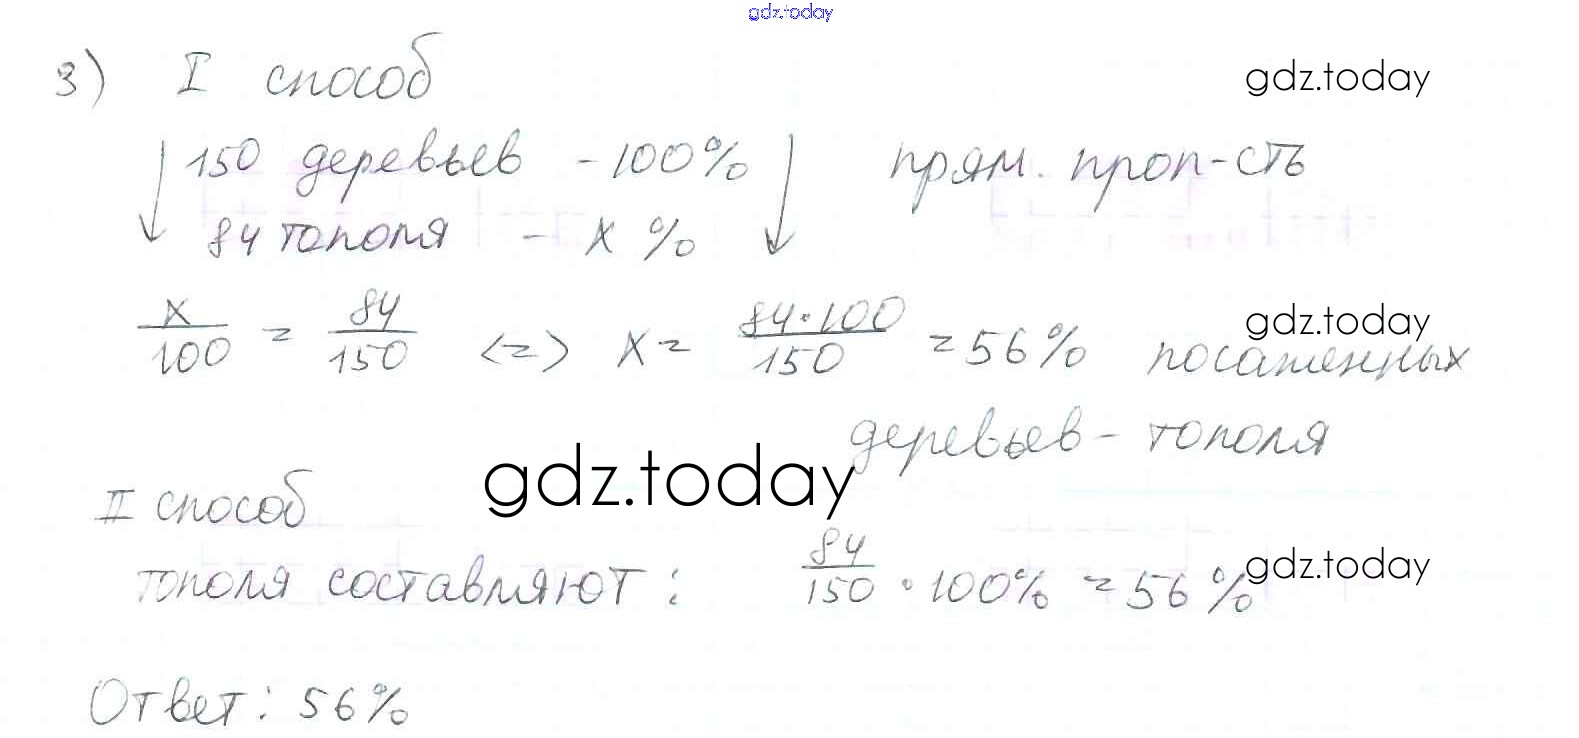 gdz.today
3) I способ
gdz.today
↓ 150 деревьев - 100% ↓ прям. проп-сть
84 тополя - x %
x/100 = 84/150 <=> x = 84·100/150 = 56% посаженных
gdz.today
деревьев - тополя
gdz.today
II способ
тополя составляют: 84/150 · 100% = 56%
gdz.today
Ответ: 56%